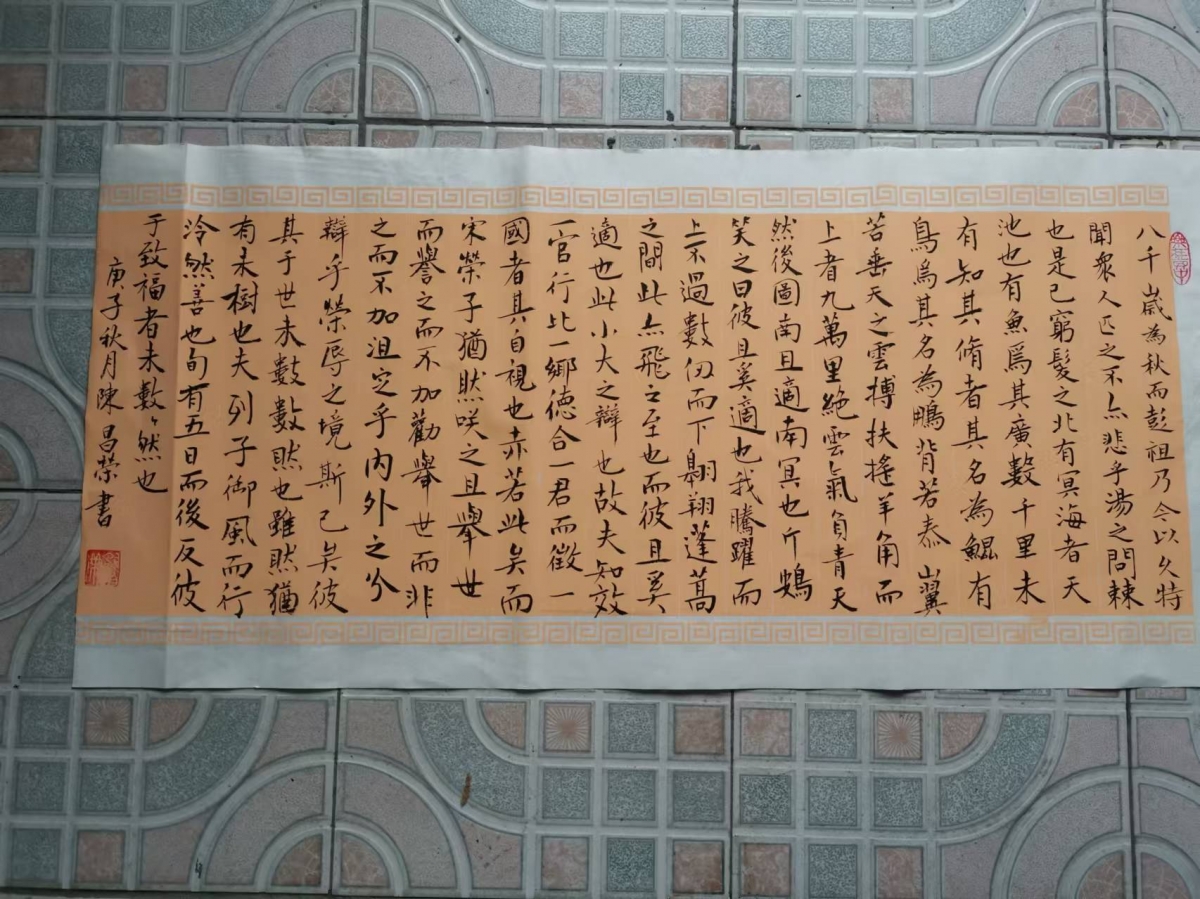 八千歲為秋而彭祖乃今以久特
聞衆人匹之不亦悲乎湯之問棘
也是已窮髮之北有冥海者天
池也有魚焉其廣數千里未
有知其脩者其名為鯤有
鳥焉其名為鵬背若泰山翼
若垂天之雲搏扶搖羊角而
上者九萬里絶雲氣負青天
然後圖南且適南冥也斥鴳
笑之曰彼且奚適也我騰躍而
上不過數仞而下翱翔蓬蒿
之間此亦飛之至也而彼且奚
適也此小大之辯也故夫知效
一官行比一鄉德合一君而徵一
國者其自視也亦若此矣而
宋榮子猶然笑之且舉世
而譽之而不加勸舉世而非
之而不加沮定乎內外之分
辯乎榮辱之境斯已矣彼
其于世未數數然也雖然猶
有未樹也夫列子御風而行
泠然善也旬有五日而後反彼
于致福者未數々然也
庚子秋月陳昌榮書